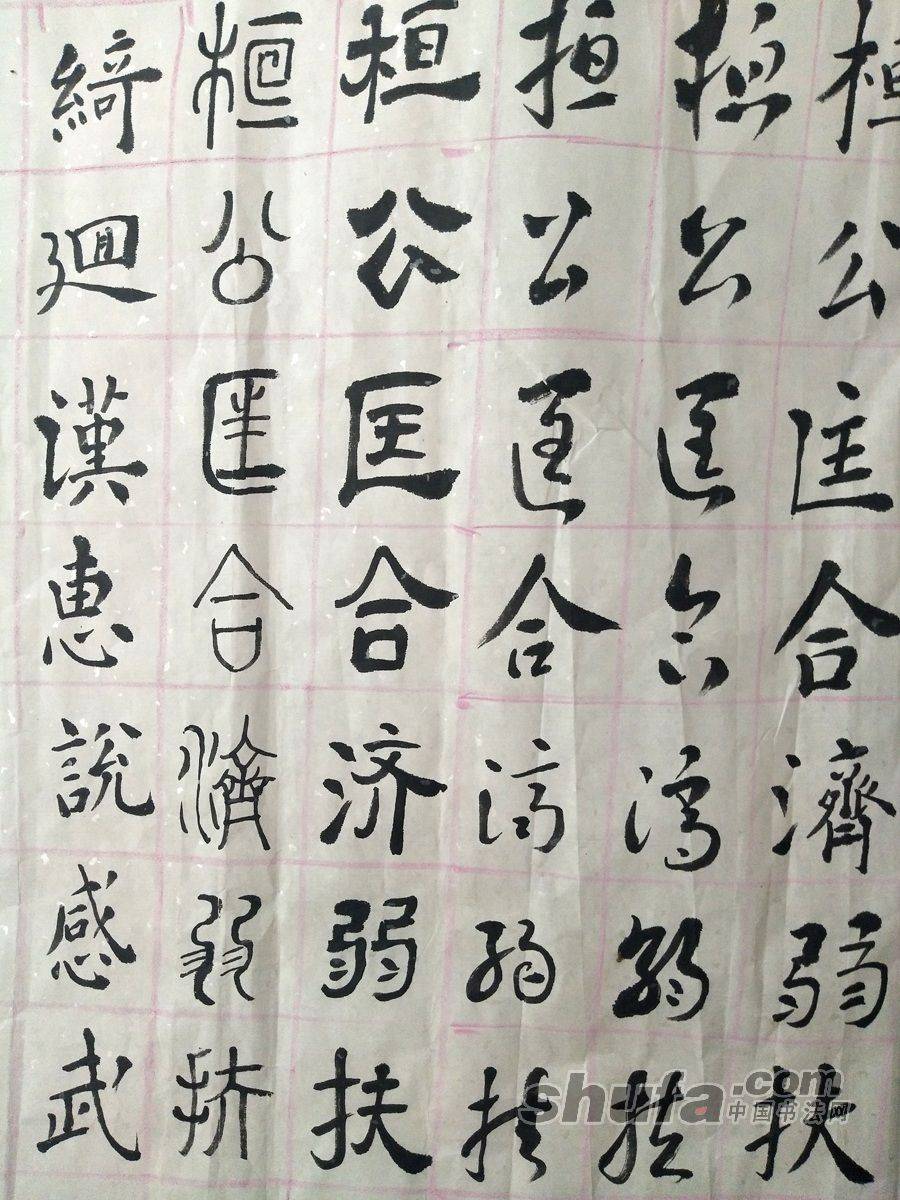 桓公匡合濟弱扶
桓公匡合濟弱扶
桓公匡合濟弱扶
桓公匡合济弱扶
桓公匡合濟弱扶
綺廻漢惠說感武
shufa.com
中国书法网